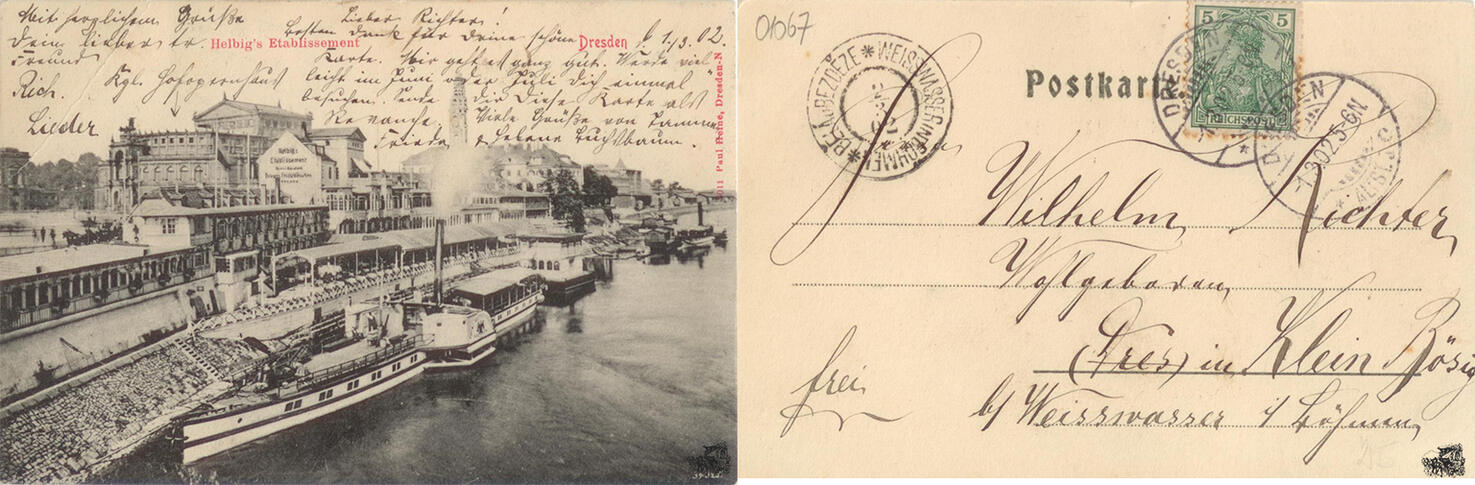 Mit herzlichem Grüße
Dein lieber
Freund
Rich.
Lieder
Kgl. Hofopernhaus
Lieber Richter!
Besten Dank für Deine schöne
Karte. Mir geht es ganz gut. Werde viel-
leicht im Juni oder Juli Dich einmal
besuchen. Sende Dir diese Karte als
Revanche. Viele Grüße von
Frieda & Helene Buchsbaum.
Helbig's Etablissement
Dresden
1./3. 02.
Helbig's
Etablissement
2011 Paul Heine, Dresden-N
01067
WEISSWASSER IN BÖHMEN
BĚLÁ U BEZDĚZE
2
3
02
Postkarte
5 5
REICHSPOST
DRESDEN
DRESDEN
1.3.02.5-6N.
ALTST.
Wilhelm Richter
Wohlgeboren
(Dres) in Klein Bösig
b/ Weisswasser i/ Böhmen
frei